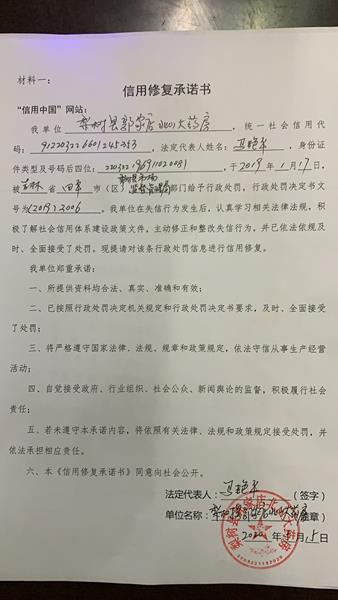 材料一：
信用修复承诺书
“信用中国”网站：
我单位梨树县郭家店北山大药房，统一社会信用代
码：，法定代表人姓名：，身份证
件类型及号码后四位：，于2019年1月17日，
被吉林省四平市（区）梨树县市场监督管理局部门给予行政处罚，行政处罚决定书文
号为(2019)2006。我单位在失信行为发生后，认真学习相关法律法规，积
极了解社会信用体系建设政策文件，主动修正和整改失信行为，并已依法依规及
时、全面接受了处罚。现提请对该条行政处罚信息进行信用修复。
我单位郑重承诺：
一、所提供资料均合法、真实、准确和有效；
二、已按照行政处罚决定机关规定和行政处罚决定书要求，及时、全面接
受了处罚；
三、将严格遵守国家法律、法规、规章和政策规定，依法守信从事生产经营
活动；
四、自觉接受政府、行业组织、社会公众、新闻舆论的监督，积极履行社会
责任；
五、若未遵守本承诺内容，将依照有关法律、法规和政策规定接受处罚，并
依法承担相应责任。
六、本《信用修复承诺书》同意向社会公开。
法定代表人：（签字）
单位名称：梨树县郭家店北山大药房（盖章）
2020年月15日